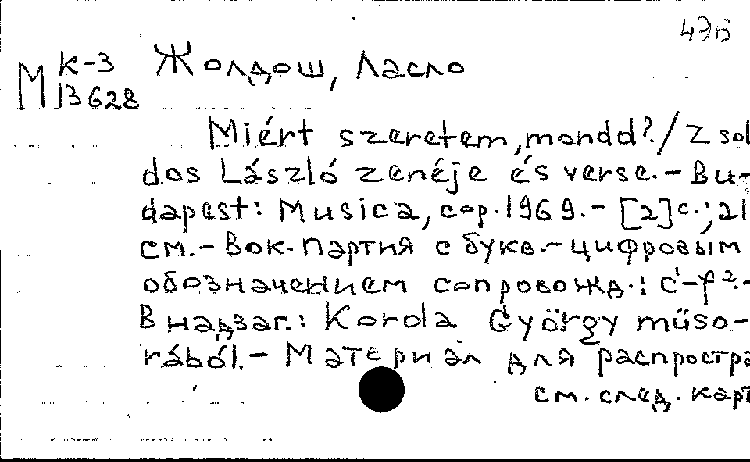 49б
М К-3 Жолдош, Ласло
13628
Miért szeretem, mondd?/Zsol
dos László zenéje és verse.-Bu-
dapest: Musica, cop.1969.-[2]с.;21
см.-Вок.партия с букв.-цифровым
обозначением сопровожд.: c'-f².-
В надзаг.: Korda György műso-
rából.-Материал для распростра
см.след.карт